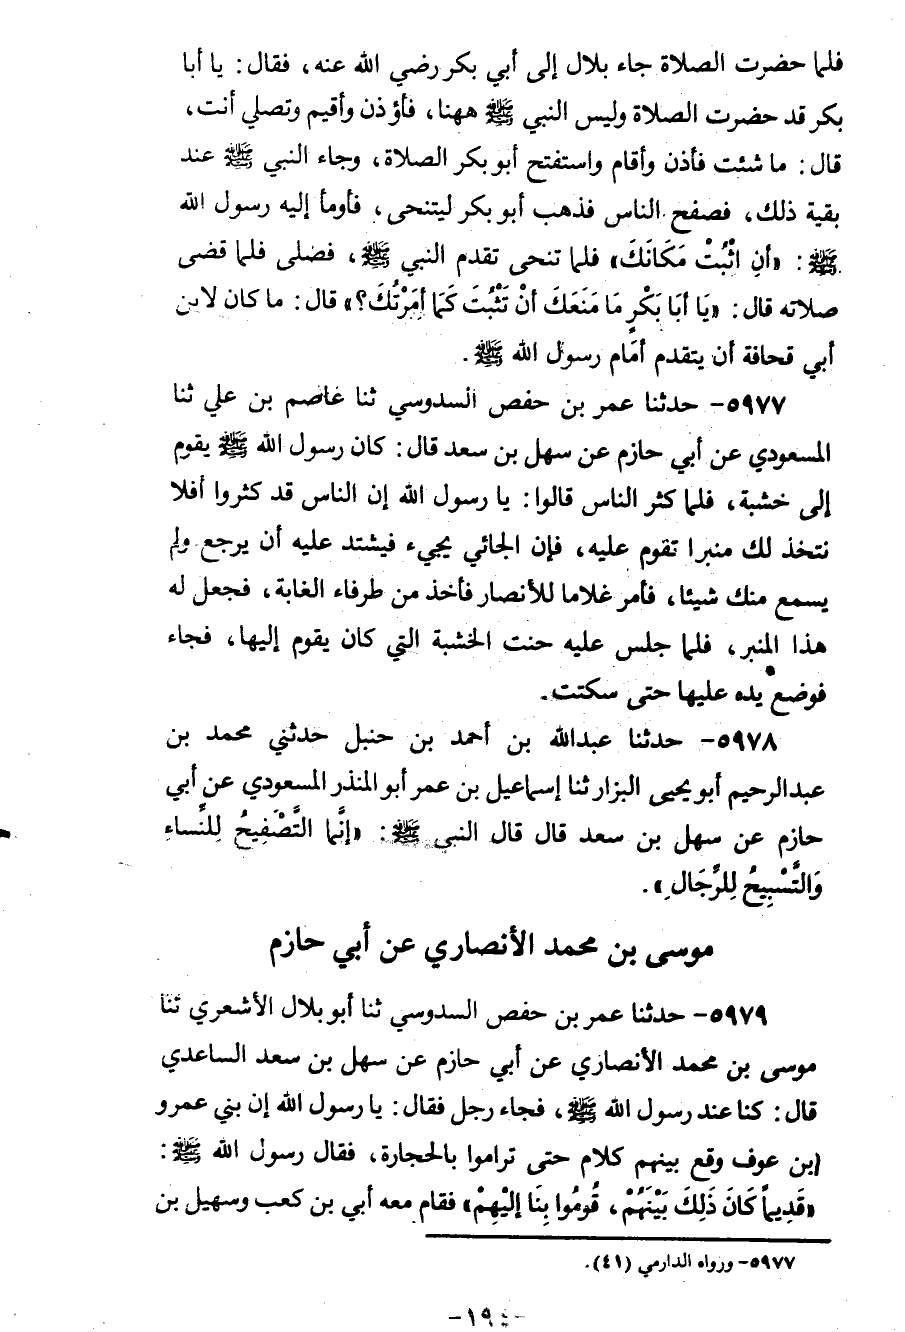 فلما حضرت الصلاة جاء بلال إلى أبي بكر رضي الله عنه، فقال: يا أبا
بكر قد حضرت الصلاة وليس النبي ﷺ ههنا، فأؤذن وأقيم وتصلي أنت،
قال: ما شئت فأذن وأقام واستفتح أبو بكر الصلاة، وجاء النبي ﷺ عند
بقية ذلك، فصفح الناس فذهب أبو بكر ليتنحى، فأومأ إليه رسول الله
ﷺ: «أَنِ اثْبُتْ مَكَانَكَ» فلما تنحى تقدم النبي ﷺ، فضلى فلما قضى
صلاته قال: «يَا أَبَا بَكْرٍ مَا مَنَعَكَ أَنْ تَثْبُتَ كَمَا أَمَرْتُكَ؟» قال: ما كان لابن
أبي قحافة أن يتقدم أمام رسول الله ﷺ.
٥٩٧٧- حدثنا عمر بن حفص السدوسي ثنا عاصم بن علي ثنا
المسعودي عن أبي حازم عن سهل بن سعد قال: كان رسول الله ﷺ يقوم
إلى خشبة، فلما كثر الناس قالوا: يا رسول الله إن الناس قد كثروا أفلا
نتخذ لك منبرا تقوم عليه، فإن الجائي يجيء فيشتد عليه أن يرجع ولم
يسمع منك شيئا، فأمر غلاما للأنصار فأخذ من طرفاء الغابة، فجعل له
هذا المنبر، فلما جلس عليه حنت الخشبة التي كان يقوم إليها، فجاء
فوضع يده عليها حتى سكتت.
٥٩٧٨- حدثنا عبدالله بن أحمد بن حنبل حدثني محمد بن
عبدالرحيم أبو يحيى البزار ثنا إسماعيل بن عمر أبو المنذر المسعودي عن أبي
حازم عن سهل بن سعد قال قال النبي ﷺ: «إنَّمَا التَّصْفِيحُ لِلنِّساءِ
وَالتَّسْبِيحُ لِلرِّجَالِ».
موسى بن محمد الأنصاري عن أبي حازم
٥٩٧٩- حدثنا عمر بن حفص السدوسي ثنا أبو بلال الأشعري ثنا
موسى بن محمد الأنصاري عن أبي حازم عن سهل بن سعد الساعدي
قال: كنا عند رسول الله ﷺ، فجاء رجل فقال: يا رسول الله إن بني عمرو
ابن عوف وقع بينهم كلام حتى تراموا بالحجارة، فقال رسول الله ﷺ:
«قَدِيماً كَانَ ذَلِكَ بَيْنَهُمْ، قُومُوا بِنَا إلَيْهِمْ» فقام معه أبي بن كعب وسهيل بن
٥٩٧٧- ورواه الدارمي (٤١).
-١٩٤-